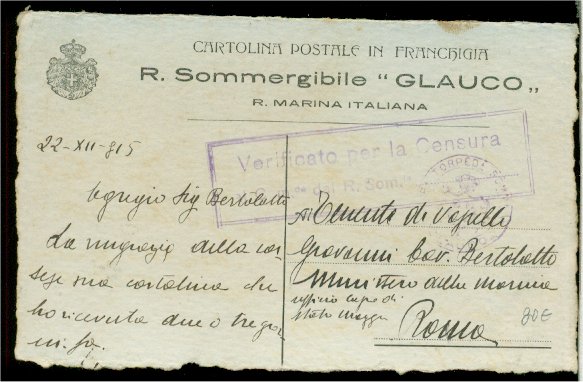 CARTOLINA POSTALE IN FRANCHIGIA
R. Sommergibile "GLAUCO„
R. MARINA ITALIANA
Verificato per la Censura
del R. Som.
22-XII-915
Egregio Sig Bertolotto
La ringrazio della cor-
tese sua cartolina che
ho ricevuta due o tre gior
ni fa.
Al Tenente di Vascello
Giovanni Cav. Bertolotto
Ministero della Marina
ufficio capo di
stato magg.
Roma
80€